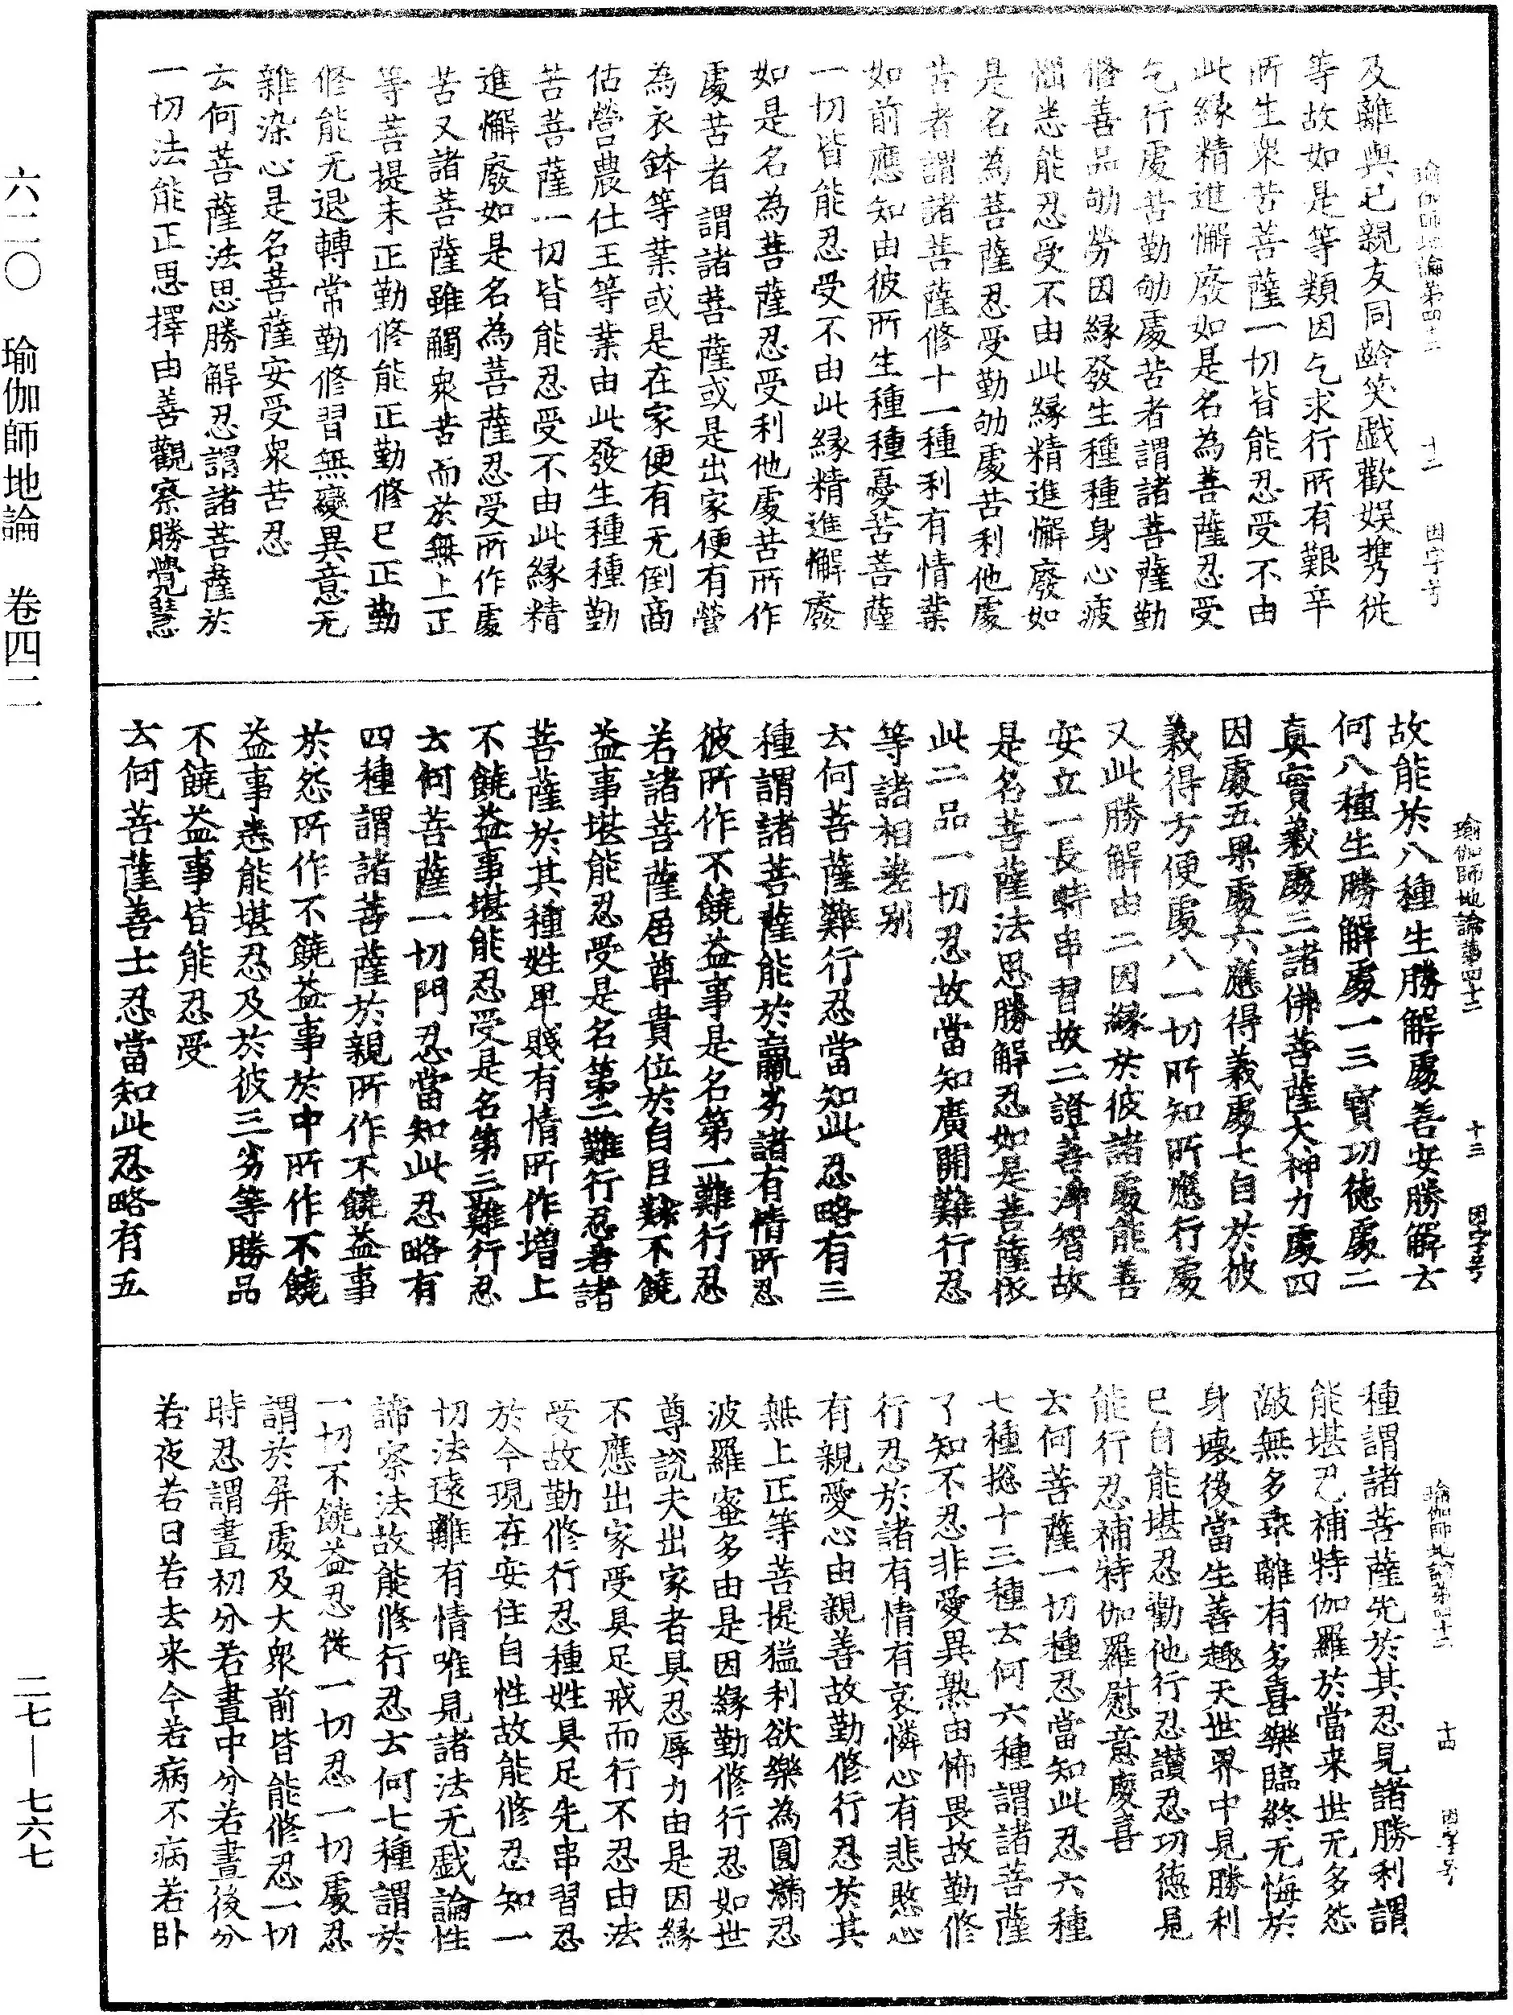 瑜伽師地論第四十二　十二　因字号
及離與已親友同齡笑戲歡娛攜從
等故如是等類因乞求行所有艱辛
所生眾苦菩薩一切皆能忍受不由
此緣精進懈廢如是名為菩薩忍受
乞行處苦勤劬處苦者謂諸菩薩勤
修善品劬勞因緣發生種種身心疲
惱悉能忍受不由此緣精進懈廢如
是名為菩薩忍受勤劬處苦利他處
苦者謂諸菩薩修十一種利有情業
如前應知由彼所生種種憂苦菩薩
一切皆能忍受不由此緣精進懈廢
如是名為菩薩忍受利他處苦所作
處苦者謂諸菩薩或是出家便有營
為衣鉢等業或是在家便有无倒商
估營農仕王等業由此發生種種勤
苦菩薩一切皆能忍受不由此緣精
進懈廢如是名為菩薩忍受所作處
苦又諸菩薩雖觸眾苦而於無上正
等菩提未正勤修能正勤修已正勤
修能无退轉常勤修習無變異意无
雜染心是名菩薩安受眾苦忍
云何菩薩法思勝解忍謂諸菩薩於
一切法能正思擇由善觀察勝覺慧
瑜伽師地論第四十二　十三　因字号
故能於八種生勝解處善安勝解云
何八種生勝解處一三寶功德處二
真實義處三諸佛菩薩大神力處四
因處五果處六應得義處七自於彼
義得方便處八一切所知所應行處
又此勝解由二因緣於彼諸處能善
安立一長時串習故二證善淨智故
是名菩薩法思勝解忍如是菩薩依
此二品一切忍故當知廣開難行忍
等諸相差别
云何菩薩難行忍當知此忍略有三
種謂諸菩薩能於羸劣諸有情所忍
彼所作不饒益事是名第一難行忍
若諸菩薩居尊貴位於自臣隸不饒
益事堪能忍受是名第二難行忍若諸
菩薩於其種姓卑賤有情所作增上
不饒益事堪能忍受是名第三難行忍
云何菩薩一切門忍當知此忍略有
四種謂諸菩薩於親所作不饒益事
於怨所作不饒益事於中所作不饒
益事悉能堪忍及於彼三劣等勝品
不饒益事皆能忍受
云何菩薩善士忍當知此忍略有五
瑜伽師地論第四十二　十四　因字号
種謂諸菩薩先於其忍見諸勝利謂
能堪忍補特伽羅於當来世无多怨
敵無多乖離有多喜樂臨終无悔於
身壞後當生善趣天世界中見勝利
已自能堪忍勸他行忍讚忍功德見
能行忍補特伽羅慰意慶喜
云何菩薩一切種忍當知此忍六種
七種揔十三種云何六種謂諸菩薩
了知不忍非愛異熟由怖畏故勤修
行忍於諸有情有哀憐心有悲愍心
有親愛心由親善故勤修行忍於其
無上正等菩提猛利欲樂為圓滿忍
波羅蜜多由是因緣勤修行忍如世
尊說夫出家者具忍辱力由是因緣
不應出家受具足戒而行不忍由法
受故勤修行忍種姓具足先串習忍
於今現在安住自性故能修忍知一
切法遠離有情唯見諸法无戲論性
諦察法故能修行忍云何七種謂於
一切不饒益忍從一切忍一切處忍
謂於屏處及大眾前皆能修忍一切
時忍謂晝初分若晝中分若晝後分
若夜若日若去来今若病不病若卧
六二〇　瑜伽師地論　卷四二
二七—七六七